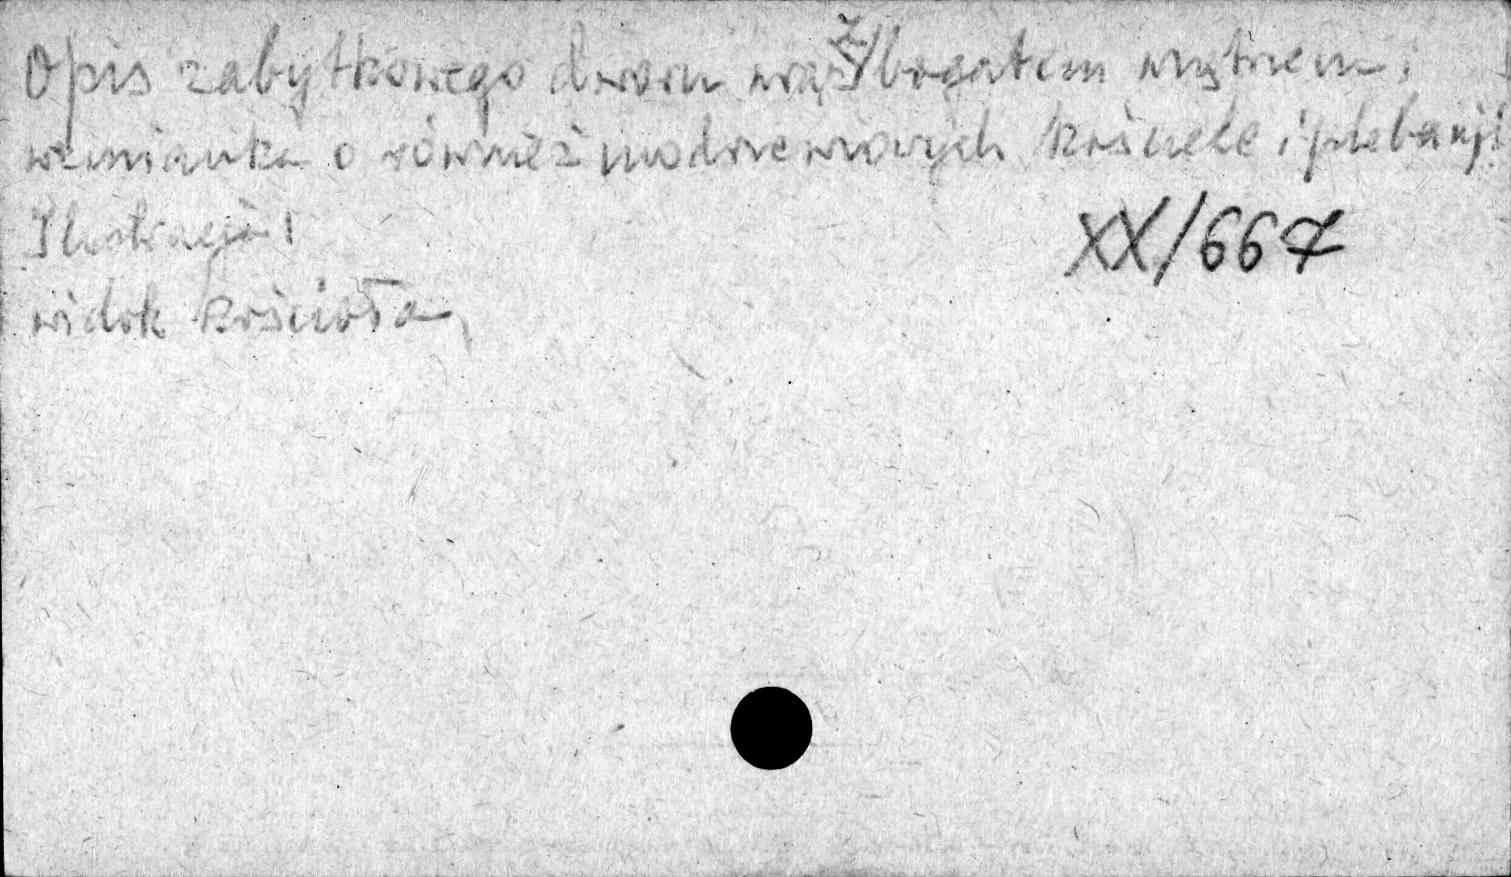 Opis zabytkowego dworu bogatem wnętrzem,
wzmianka o również modrzewiowych kościele i plebanji
Ilustracja:
XX/667
widok kościoła,